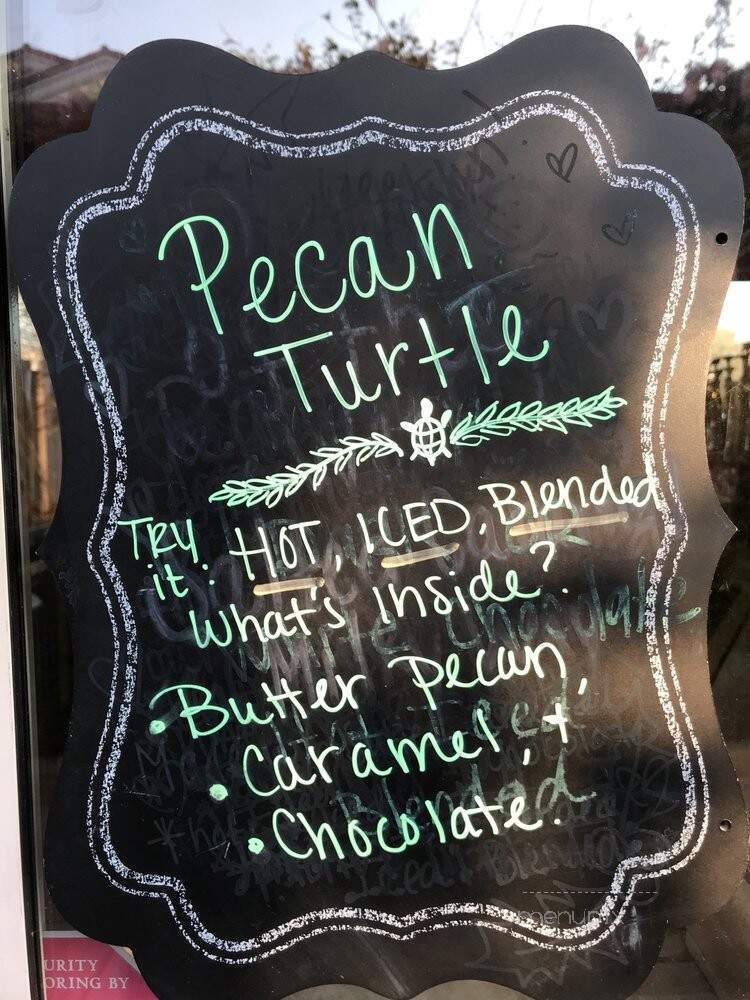 Pecan
Turtle
Try it: HOT, ICED, Blended
What's inside?
• Butter pecan,
• Caramel, +
• Chocolate.
URITY
ORING BY